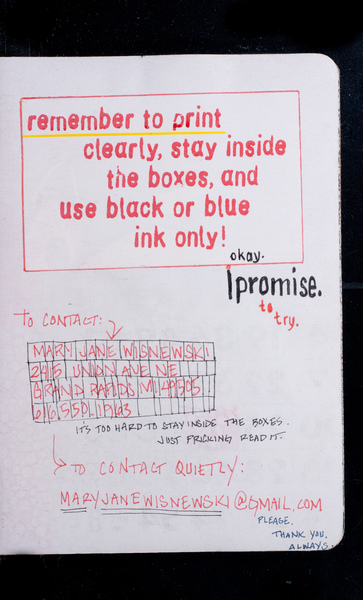 remember to print
clearly, stay inside
the boxes, and
use black or blue
ink only!
okay.
I promise.
to
try.
TO CONTACT:
MARY JANE WISNEWSKI
2415 UNION AVE NE
GRAND RAPIDS MI 49505
616.550.1963
IT'S TOO HARD TO STAY INSIDE THE BOXES.
JUST FRICKING READ IT.
TO CONTACT QUIETLY:
MARYJANEWISNEWSKI@GMAIL.COM
PLEASE.
THANK YOU.
ALWAYS.